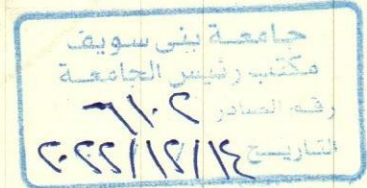 جامعة بنى سويف
مكتب رئيس الجامعة
رقم الصادر ٦١٠٢
التاريخ ٢٠٢٢/١٢/١٤